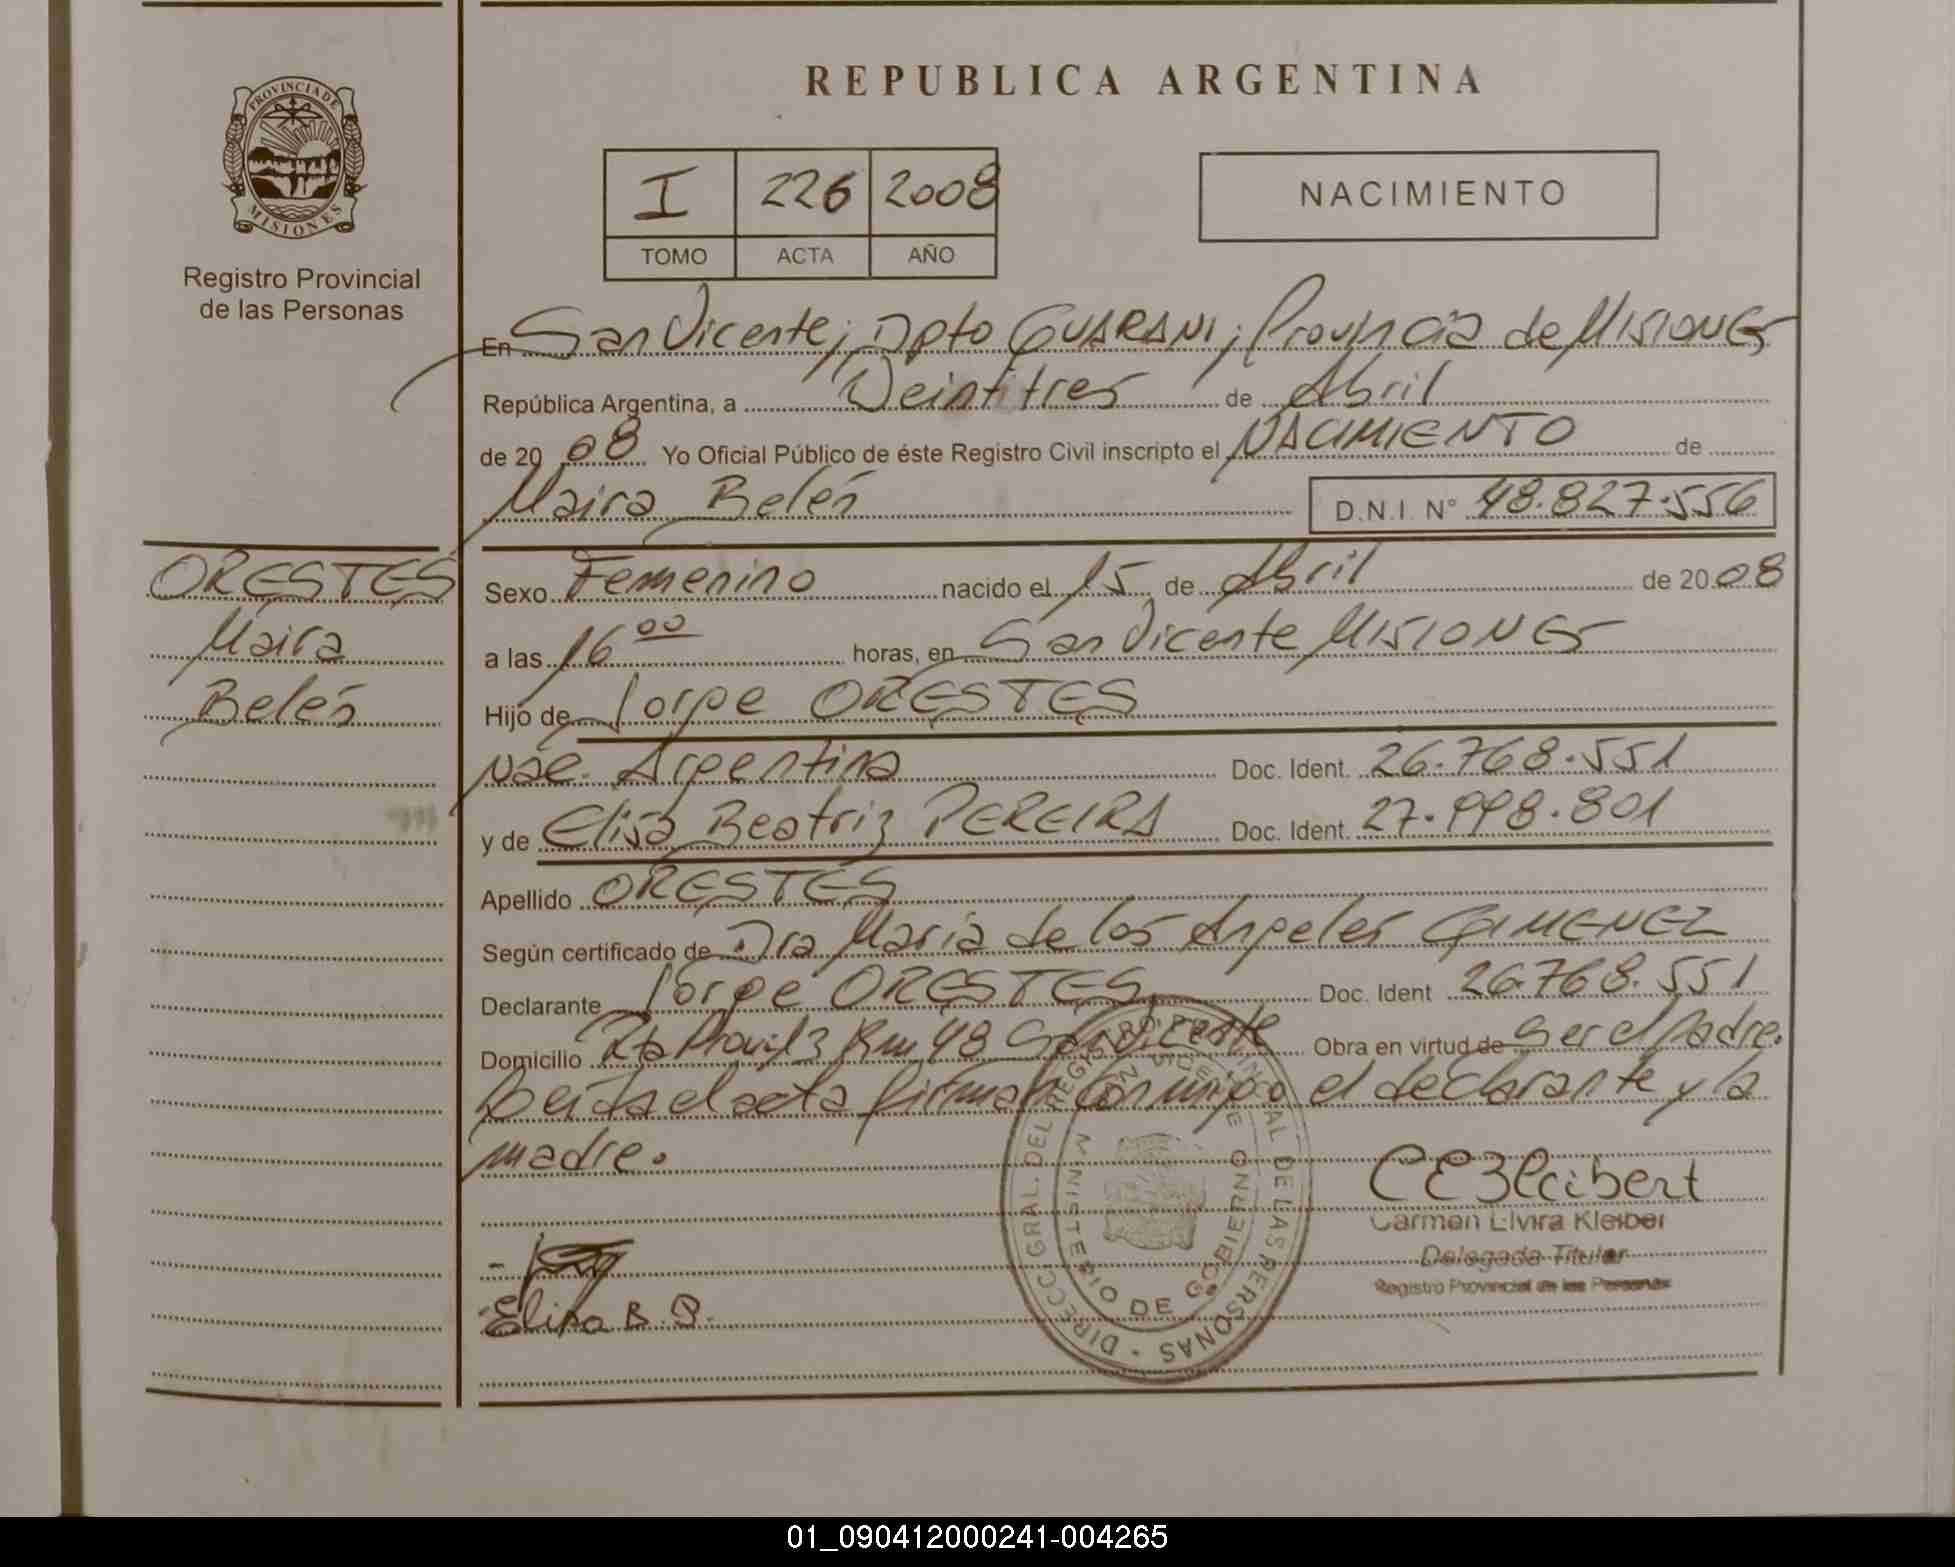 REPUBLICA ARGENTINA
PROVINCIA DE
MISIONES
Registro Provincial
de las Personas
I 226 2008
TOMO ACTA AÑO
NACIMIENTO
En San Vicente; Dpto GUARANI; Provincia de MISIONES
República Argentina, a Veintitres de Abril
de 20 08 Yo Oficial Público de éste Registro Civil inscripto el NACIMIENTO de
Maira Belén D.N.I. N° 48.827.556
ORESTES
Maira
Belén
Sexo Femenino nacido el 15 de Abril de 20 08
a las 16 00 horas, en San Vicente MISIONES
Hijo de Jorge ORESTES
Nac. Argentina Doc. Ident. 26.768.551
y de Elisa Beatriz PEREIRA Doc. Ident. 27.998.801
Apellido ORESTES
Según certificado de Dra María de los Angeles GIMENEZ
Declarante Jorge ORESTES Doc. Ident 26.768.551
Domicilio Rta Prov. Km 48 San Vicente Obra en virtud de ser el padre.
el acta firman conmigo el declarante y la
madre.
DIRECC. GRAL. DEL REGISTRO PROVINCIAL DE LAS PERSONAS
SAN VICENTE
MINISTERIO DE GOBIERNO
CEKleibert
Carmen Elvira Kleiber
Delegada Titular
Registro Provincial de las Personas
Elisa B. P.
01_090412000241-004265